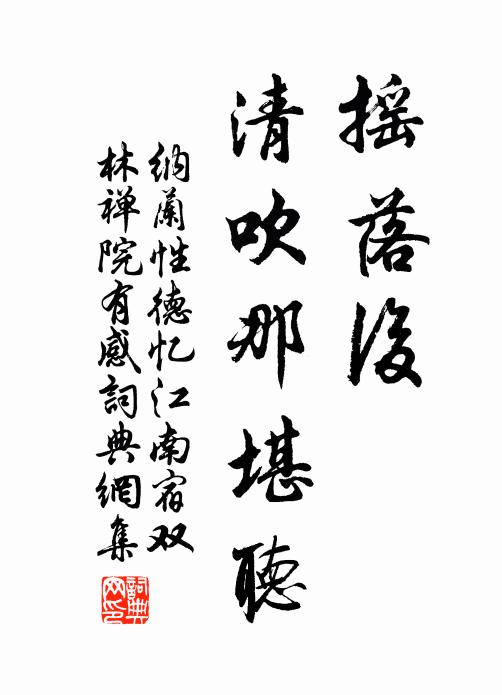 摇落後
清吹那堪聽
納蘭性德忆江南宿双
林禅院有感詞典網集
詞典网印